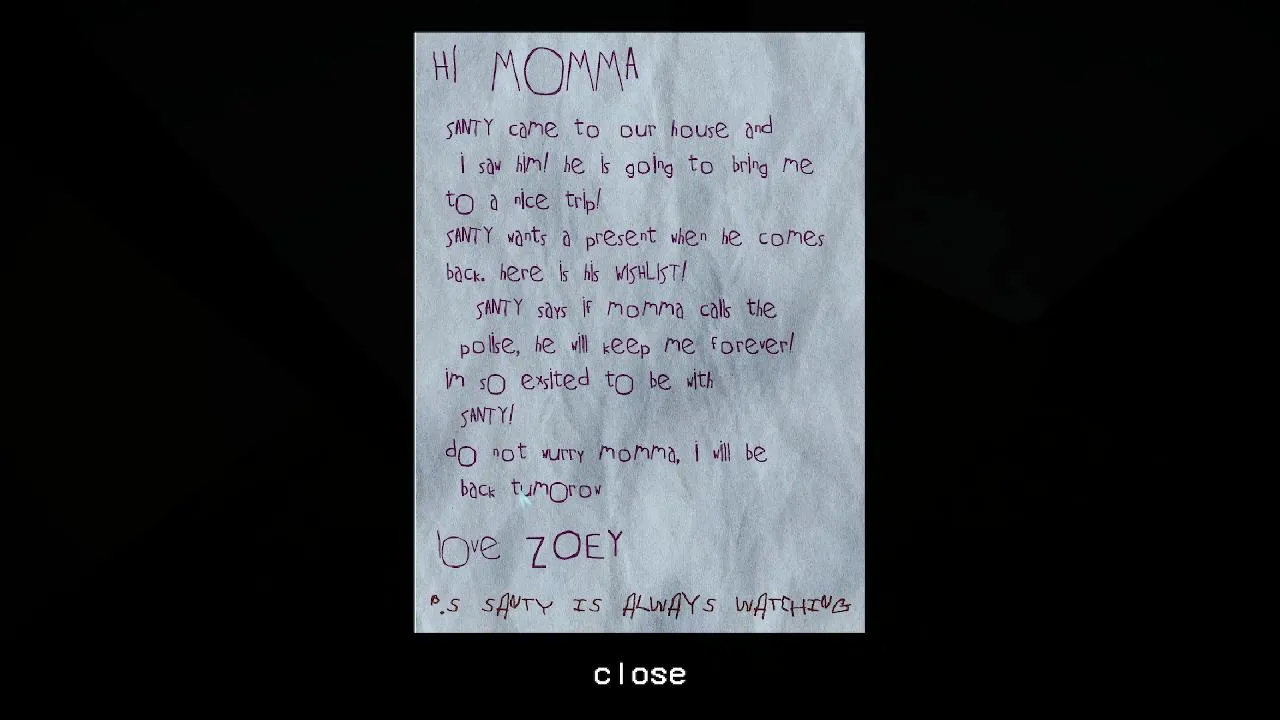 Hi MOMMA
SANTY came to our house and
i saw him! he is going to bring me
to a nice trip!
SANTY wants a present when he comes
back. here is his WISHLIST!
SANTY says if momma calls the
polise, he will keep me forever!
im so exsited to be with
SANTY!
do not wurry momma, i will be
back tumorow
love ZOEY
P.S SANTY IS ALWAYS WATCHING
close